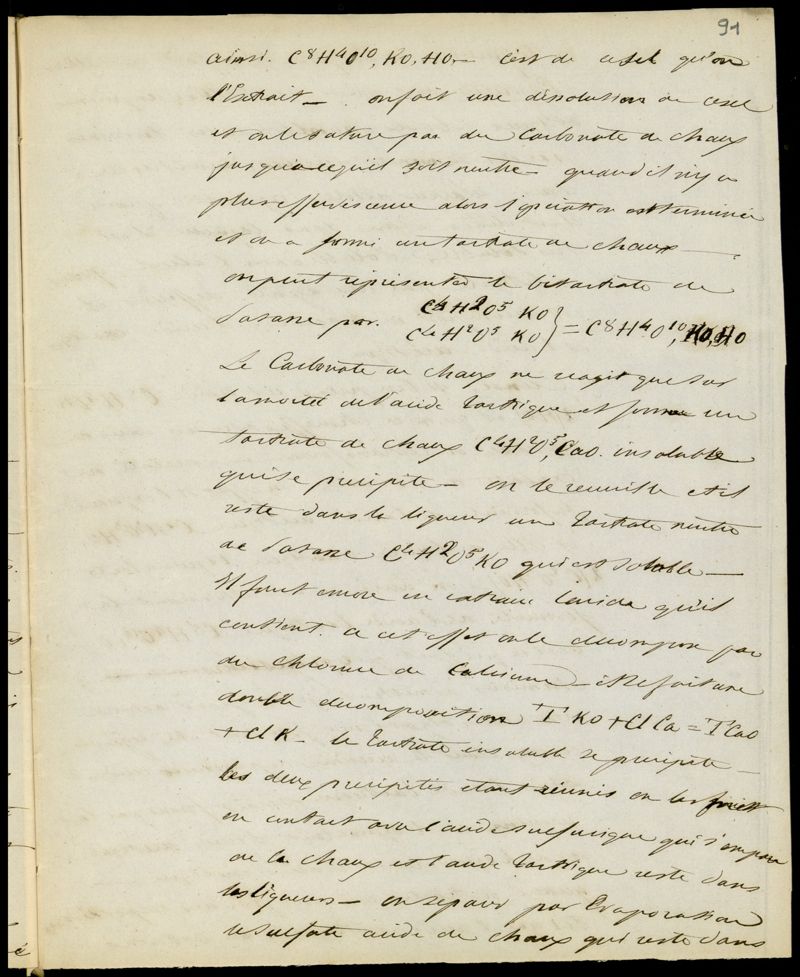 91
ainsi. C⁸H⁴O¹⁰, KO, HO — c'est de ce sel qu'on
l'Extrait — on fait une dissolution de ce sel
et on le sature par du Carbonate de chaux
jusqu'a ce qu'il soit neutre — quand il n'y a
plus effervescence alors l'opération est terminée
et on a formé un tartrate de chaux —
on peut représenter le bitartrate de
potasse par. C⁴H²O⁵ KO
C⁴H²O⁵ KO } = C⁸H⁴O¹⁰, KO, HO
Le Carbonate de chaux ne reagit que sur
la moitié de l'acide Tartrique et forme un
tartrate de chaux C⁴H²O⁵, CaO. insoluble
qui se precipite — on le recueille et il
reste dans la liqueur un Tartrate neutre
de Potasse C⁴H²O⁵ KO qui est soluble —
Il faut encore en extraire l'acide qu'il
contient. a cet effet on le decompose par
du chlorure de Calcium — il se fait une
double decomposition T KO + Cl Ca = T CaO
+ Cl K — le Tartrate insoluble se precipite —
les deux precipités etant réunis on les met
en contact avec l'acide sulfurique qui s'empare
de la chaux et l'acide Tartrique reste dans
les liqueurs — on separe par Evaporation
le sulfate acide de chaux qui reste dans